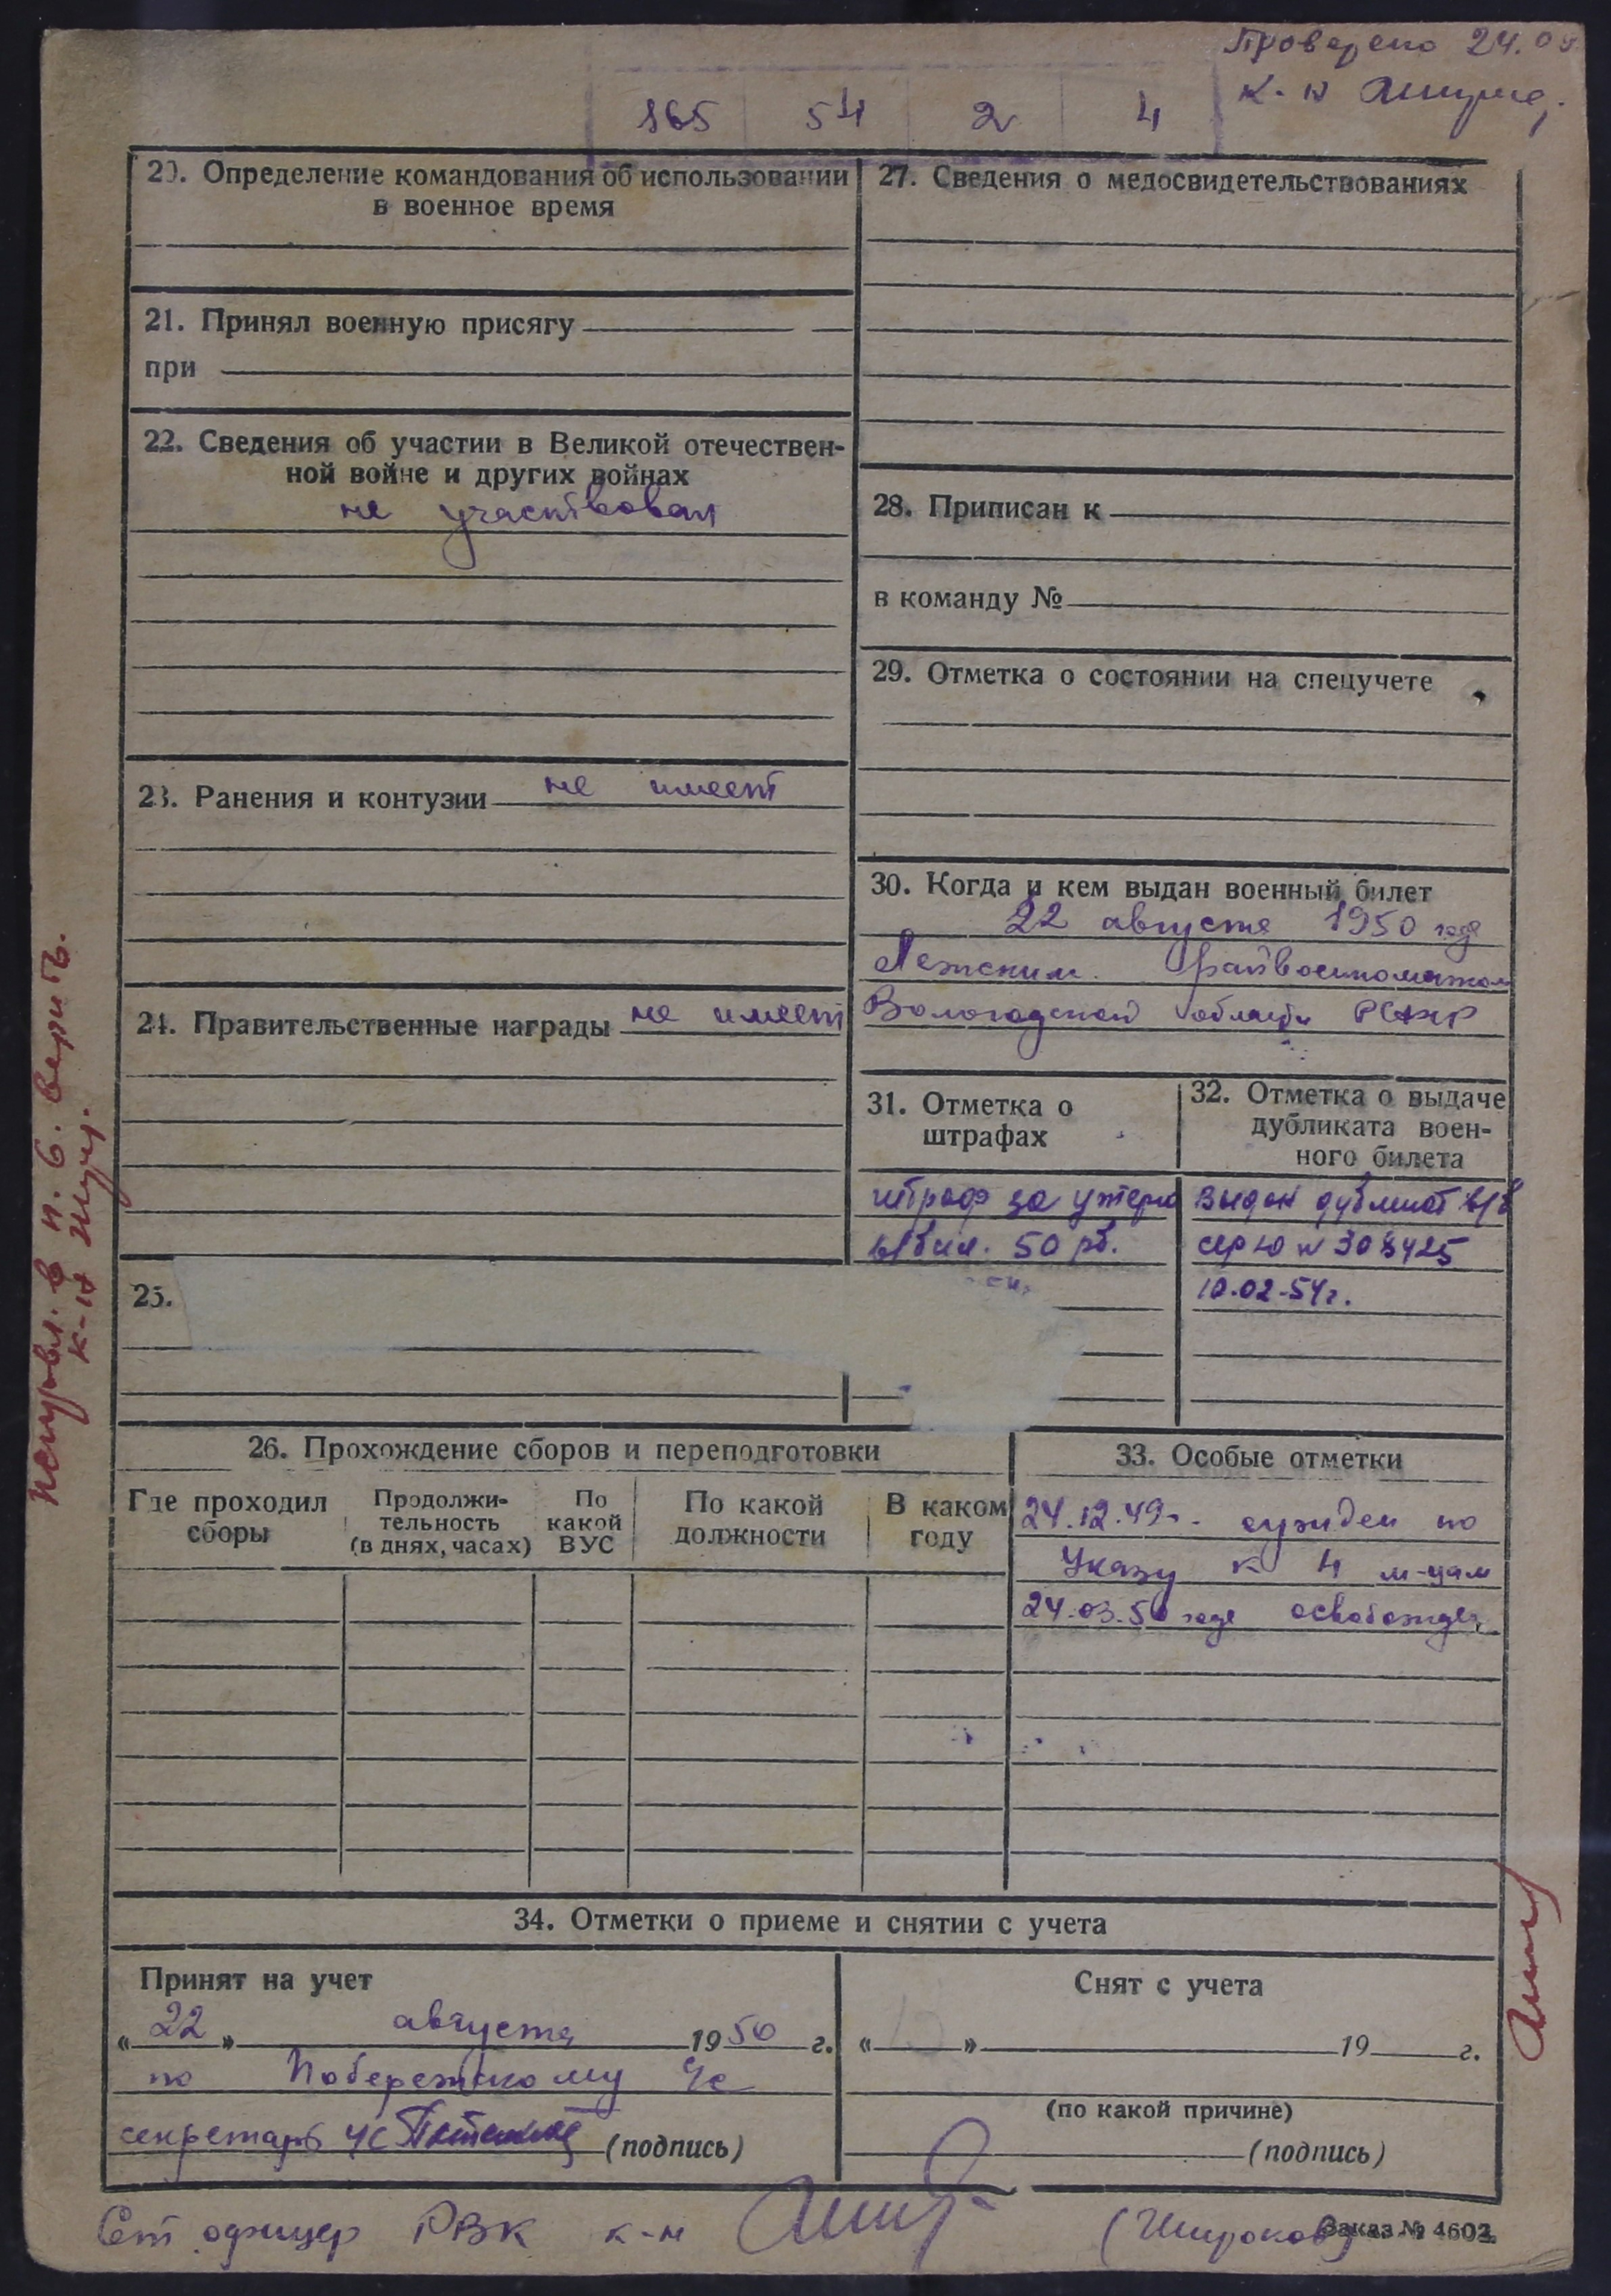 Проверено 24.0
к-н
165 54 2 4
20. Определение командования об использовании
в военное время
21. Принял военную присягу
при
22. Сведения об участии в Великой отечествен-
ной войне и других войнах
не участвовал
23. Ранения и контузии не имеет
24. Правительственные награды не имеет
25.
27. Сведения о медосвидетельствованиях
28. Приписан к
в команду №
29. Отметка о состоянии на спецучете
30. Когда и кем выдан военный билет
22 августа 1950 года
Лежским райвоенкоматом
Вологодской области РСФСР
31. Отметка о
штрафах
штраф за утерю
в/бил. 50 рб.
32. Отметка о выдаче
дубликата воен-
ного билета
выдан дубликат в/б
сер Ю № 308425
10.02-54г.
26. Прохождение сборов и переподготовки
Где проходил
сборы
Продолжи-
тельность
(в днях, часах)
По
какой
ВУС
По какой
должности
В каком
году
33. Особые отметки
24.12.49г. сужден по
Указу к 4 м-цам
24.03.50 года освобожден
34. Отметки о приеме и снятии с учета
Принят на учет
« 22 » августа 1950 г.
по Побережскому ЧС
секретарь ЧС (подпись)
Снят с учета
« » 19 г.
(по какой причине)
(подпись)
Ст офицер РВК к-н (Широков)
Заказ № 4603.
исправл. в п. 6. верить.
к-н